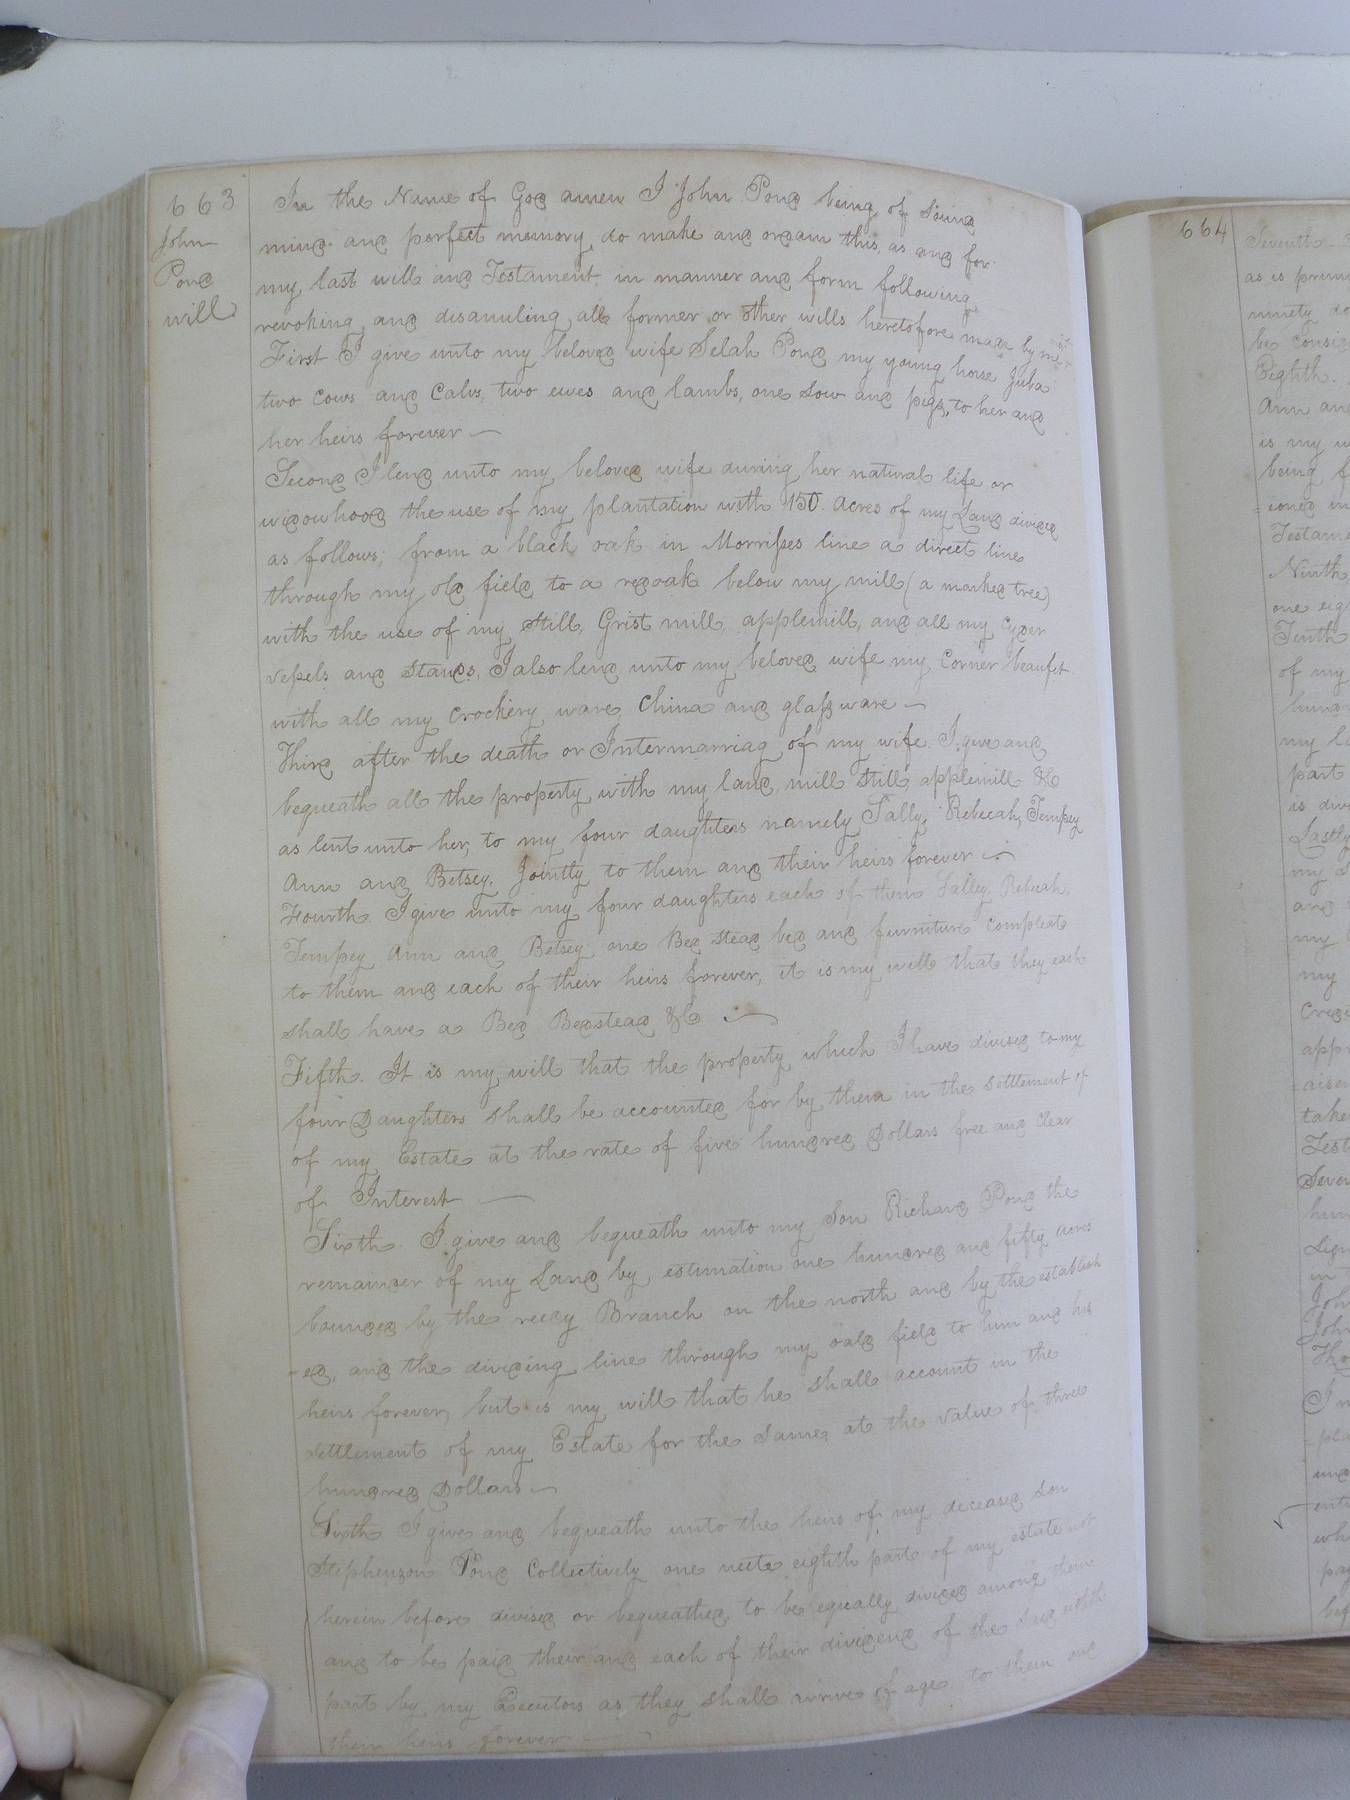 663
John
Pond
will
In the Name of God amen I John Pond being of Sound
mind and perfect memory do make and ordain this as and for
my last will and Testament in manner and form following
revoking and disanuling all former or other wills heretofore made by me
First I give unto my beloved wife Selah Pond my young horse Juba
two Cows and Calvs, two ewes and lambs, one Sow and pigs, to her and
her heirs forever
Second I lend unto my beloved wife during her natural life or
widowhood the use of my plantation with 150. Acres of my Land divided
as follows; from a black oak in Morrisses line a direct line
through my old field to a redoak below my mill (a marked tree)
with the use of my Still, Grist mill, applemill, and all my Cyder
vessels and Stands, I also lend unto my beloved wife my Corner beaufet
with all my Crockery ware China and glassware
Third after the death or Intermarriag of my wife I give and
bequeath all the property with my land, mill Still, applemill &C
as lent unto her, to my four daughters namely Sally, Rebecah, Tempey
Ann and Betsey. Jointly to them and their heirs forever
Fourth I give unto my four daughters each of them Salley Rebecah,
Tempey Ann and Betsey one Bed stead bed and furniture compleat
to them and each of their heirs forever, it is my will that they each
shall have a Bed Bedstead &C
Fifth. It is my will that the property which I have divised to my
four Daughters shall be accounted for by them in the Settlement of
of my Estate at the rate of five hundred Dollars free and Clear
of Interest
Sixth. I give and bequeath unto my Son Richard Pond the
remainder of my Land by estimation one hundred and fifty acres
bounded by the reedy Branch on the north and by the establish
-ed, and the dividing line through my oald field to him and his
heirs forever, but is my will that he shall account in the
Settlement of my Estate for the Same at the value of three
hundred Dollars
Sixth I give and bequeath unto the heirs of my deceased Son
Stephenson Pond Collectively one neete eighth part of my estate not
herein before divised or bequeathed to be equally divided among them
and to be paid their and each of their dividend of the Said eighth
part by my Executors as they shall arrive of age to them and
them heirs forever
664
Seventh
as is
ninety
be
Eighth.
Ann and
is my
being
Testame
Ninth
one eig
Tenth
of my
my
part
is
Lastly
my
and
my
my
take
Test
Seven
in
John
John
I